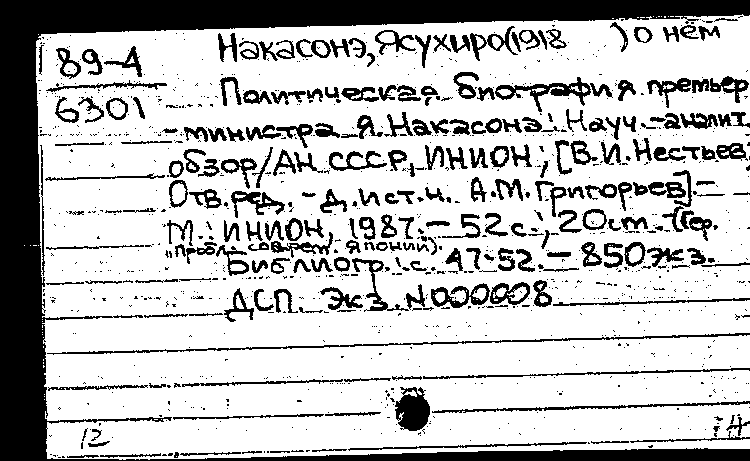 89-4
6301
Накасонэ, Ясухиро (1918 ) о нём
Политическая биография премьер
-министра Я. Накасонэ: Науч.-аналит.
обзор/АН СССР, ИНИОН; [В.И.Нестьев;
Отв. ред. - д. ист. н. А.М. Григорьев]. -
М.: ИНИОН, 1987. - 52 с.; 20 см. - (Сер.
"Пробл. соврем. Японии).
Библиогр.: с. 47-52. - 850 экз.
ДСП. Экз. N 000008
12